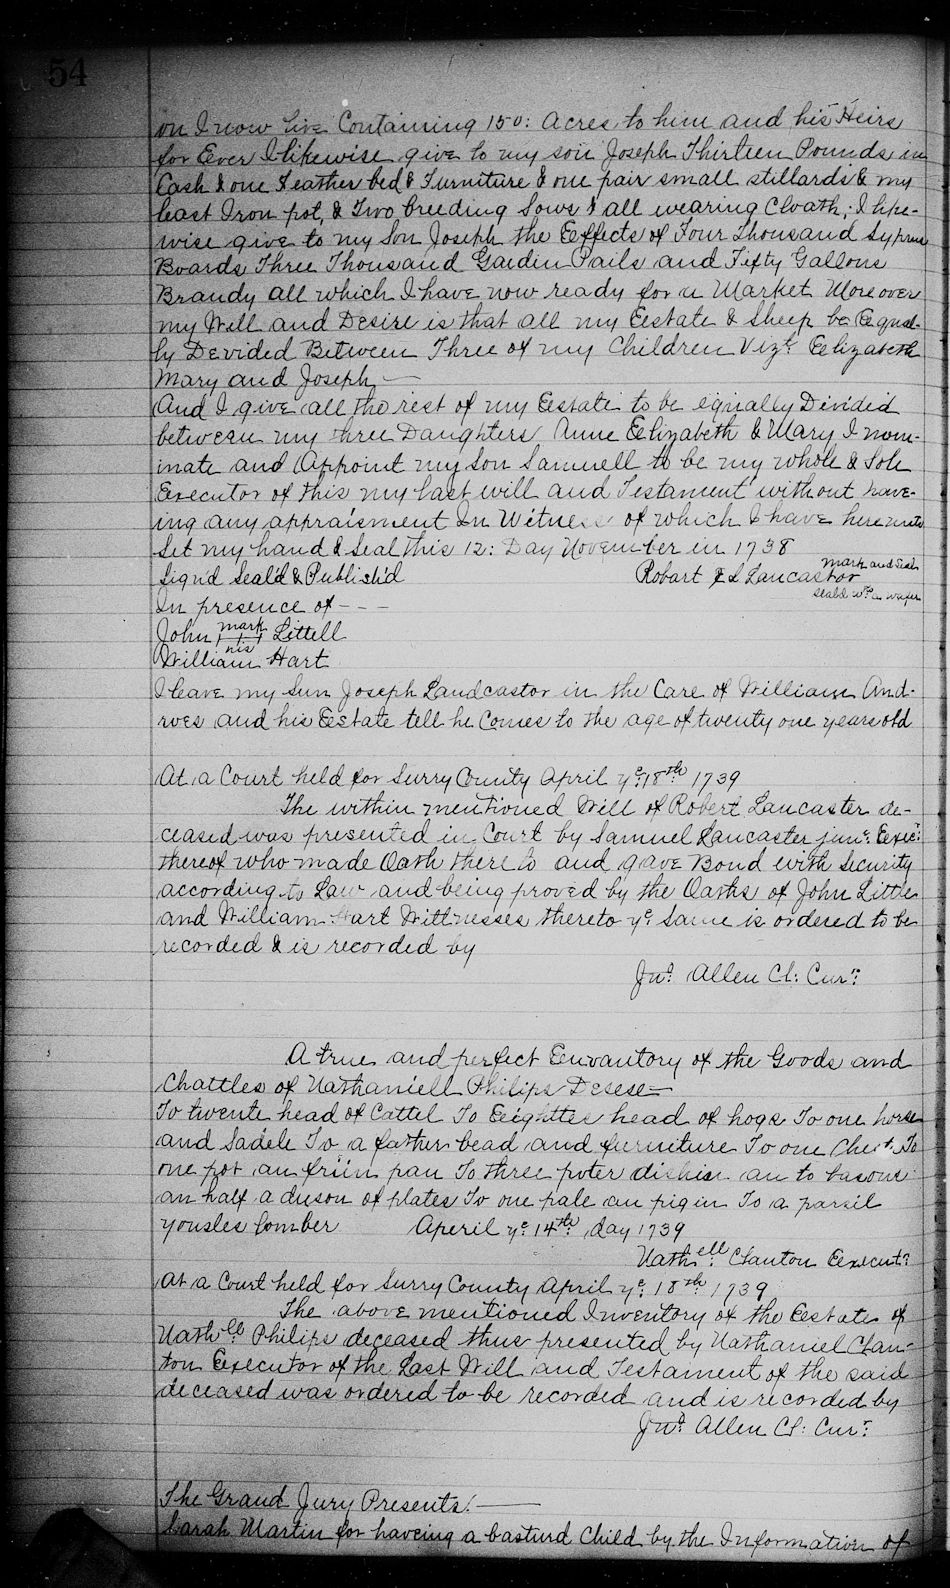 54
on I now live Containing 150: Acres to him and his Heirs
for Ever I likewise give to my son Joseph Thirteen Pounds in
Cash & one Feather bed & Furniture & one pair small stillards & my
least Iron pot, & Two breeding Sows & all wearing Cloath; I like-
wise give to my Son Joseph the Effects of Four Thousand Syprus
Boards Three Thousand Gardin Pails and Fifty Gallons
Brandy all which I have now ready for a Market Moreover
my Will and Desire is that all my Eestate & Sheep be Eequal-
ly Devided Between Three of my Children Vizt. Eelizabeth
Mary and Joseph
And I give all the rest of my Eestate to be equally Divided
between my three Daughters Anne Elizabeth & Mary I nom-
inate and Appoint my Son Samuell to be my whole & Sole
Executor of this my last will and Testament without have-
ing any appraisment In Witness of which I have here unto
Set my hand & Seal this 12: Day November in 1738
Sign'd Seal'd & Publish'd Robart L Lancastor mark and Seal
In presence of - - - Seald wth a wafer
John mark Littell
his
William Hart
I leave my Sun Joseph Landcastor in the Care of William And-
rves and his Eestate tell he Comes to the age of twenty one years old
At a Court held for Surry County April ye: 18th 1739
The within mentioned Will of Robert Lancaster de-
ceased was presented in Court by Samuel Lancaster junr. Exec:
thereof who made Oath there to and gave Bond with Security
according to Law and being proved by the Oaths of John Little
and William Hart Wittnesses thereto ye. Same is ordered to be
recorded & is recorded by
Jno. Allen Cl: Cur:
A true and perfect Eenvantory of the Goods and
Chattles of Nathaniell Philips Desese
To twente head of Cattel To Eeightte head of hogs To one horse
and Sadele To a father bead and furniture To one Chest. To
one pot an friin pan To three puter dishis an to basons
an half a duson of plates To one pale an pigin To a parsil
yousles lomber Aperil ye. 14th day 1739
Nathell: Clanton Eexecut:
At a Court held for Surry County April ye: 18th 1739
The above mentioned Inventory of the Eestate of
Nathll Philips deceased thus presented by Nathaniel Clan-
ton Executor of the Last Will and Testament of the said
deceased was ordered to be recorded and is recorded by
Jno. Allen Cl: Cur:
The Grand Jury Presents:
Sarah Martin for haveing a basturd Child by the Information of